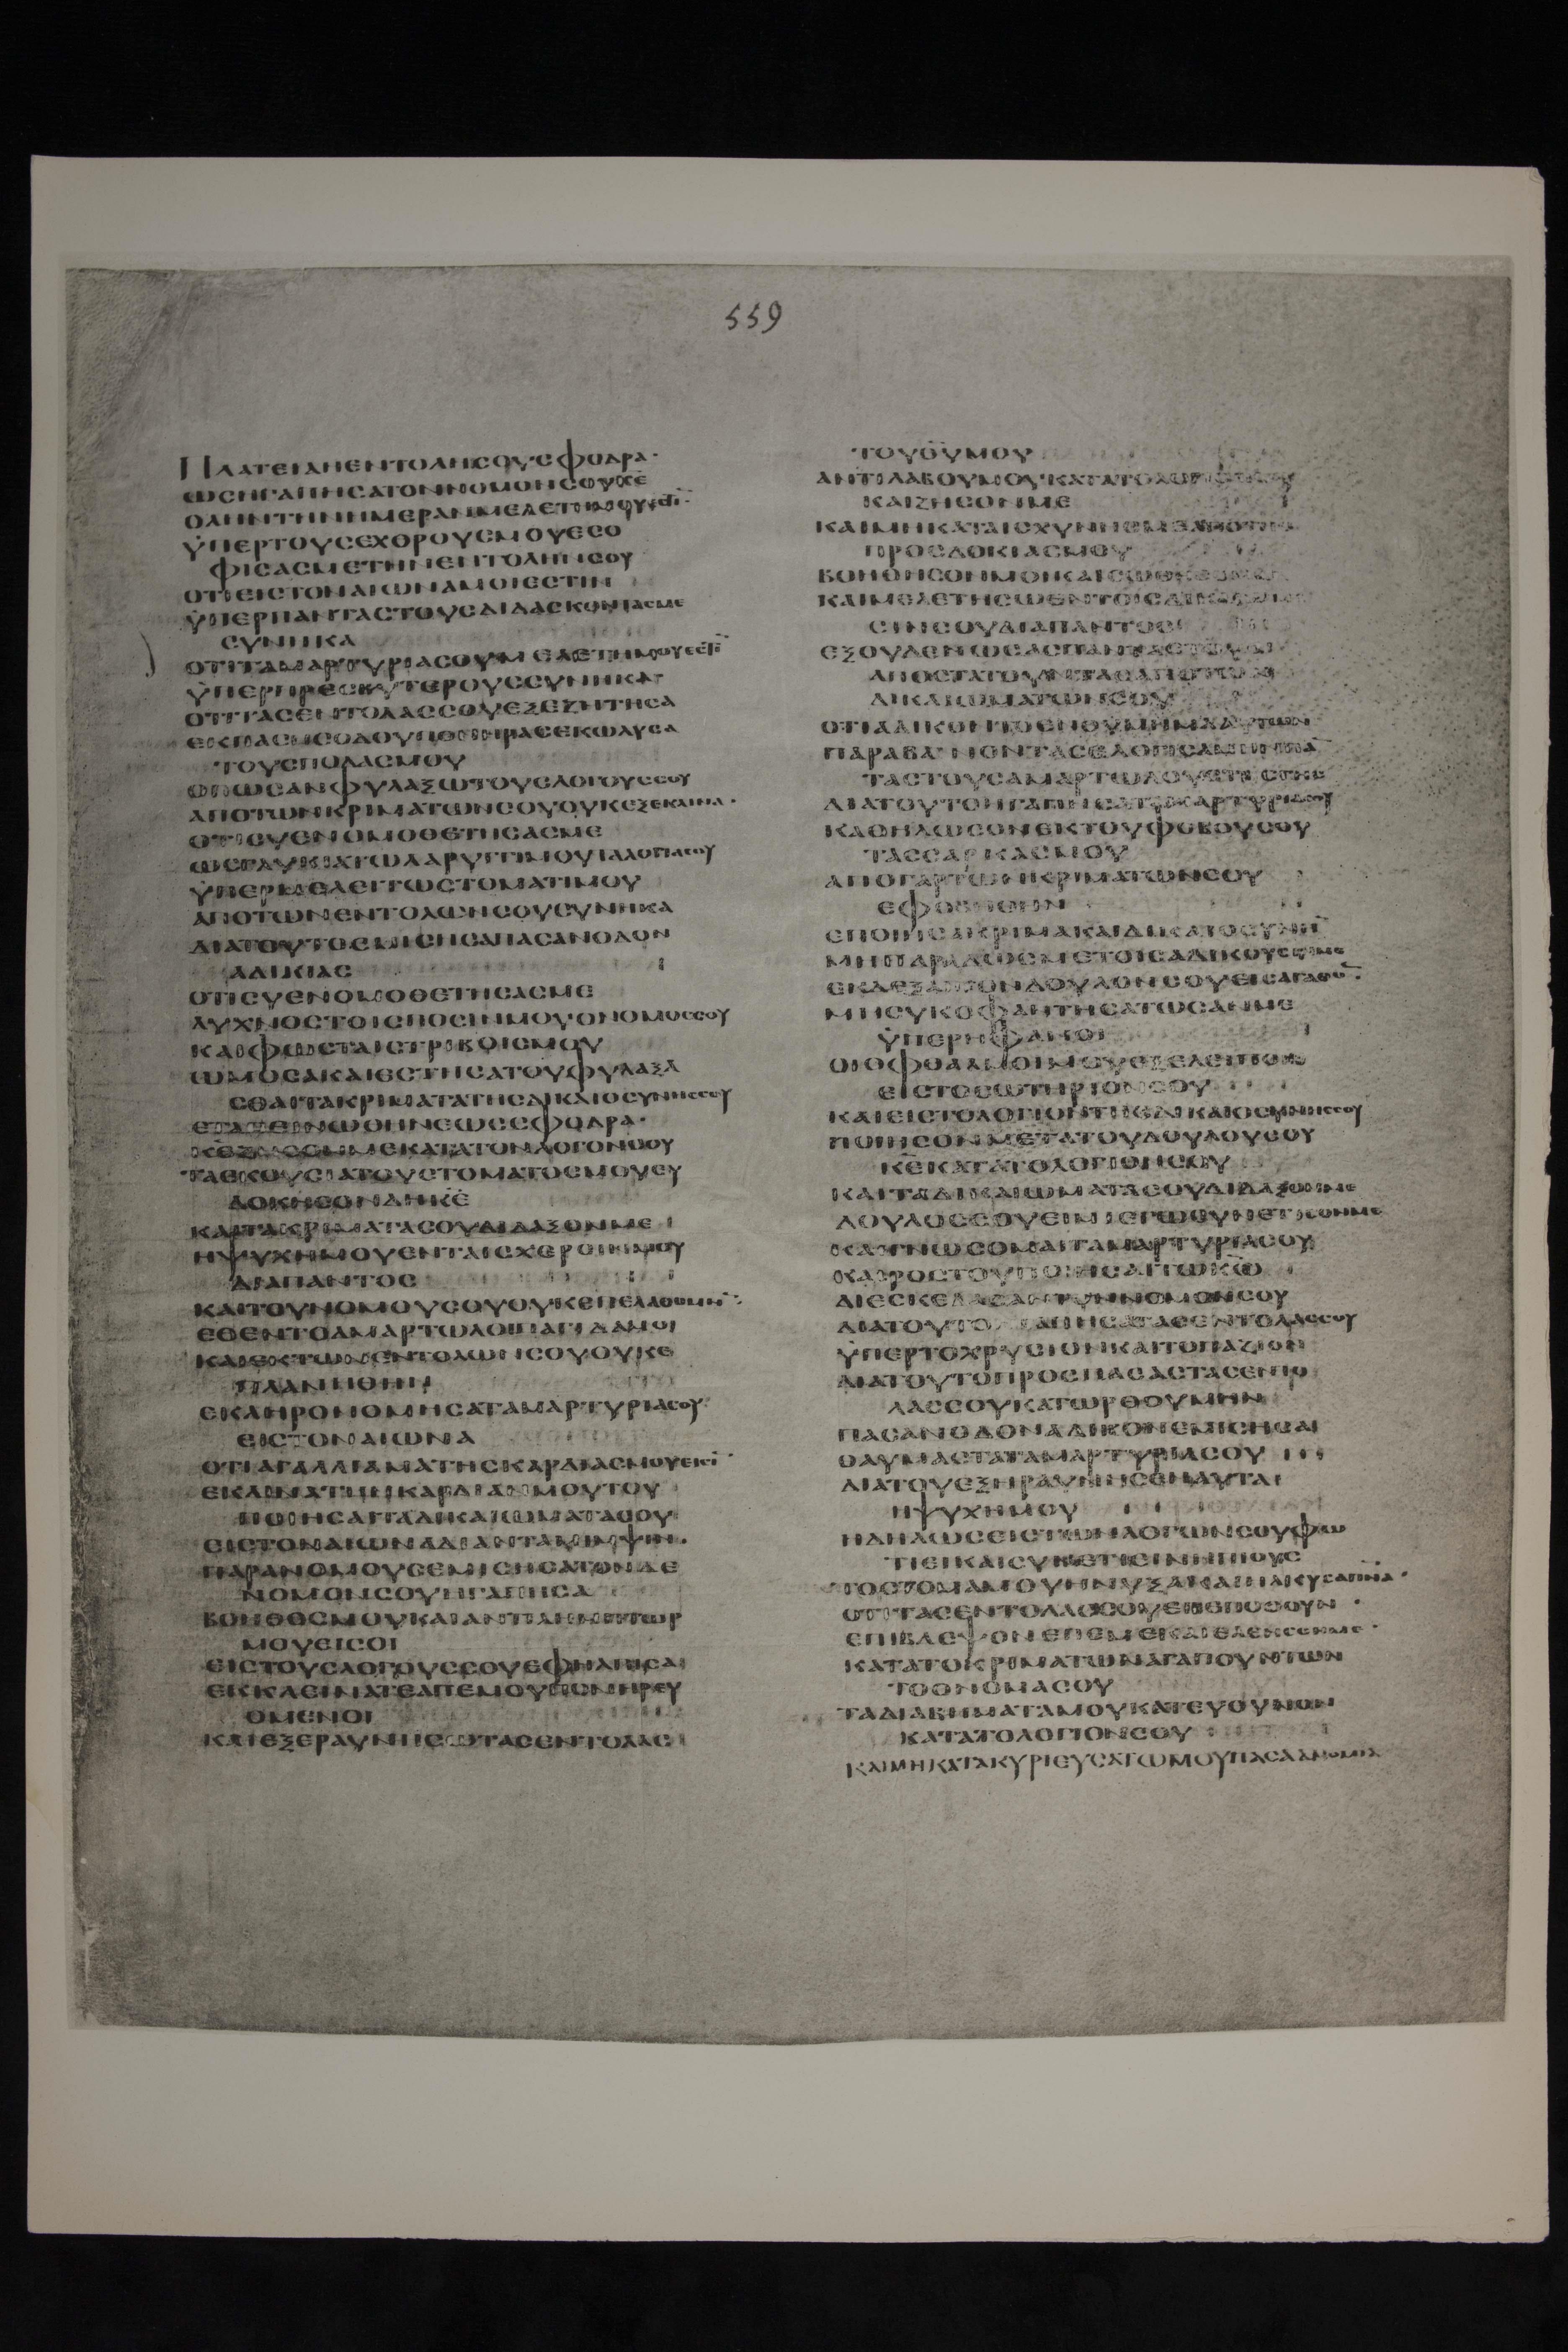 559
ΠΛΑΤΕΙΑΗΕΝΤΟΛΗΣΟΥΣΦΟΔΡΑ·
ΩΣΗΓΑΠΗΣΑΤΟΝΝΟΜΟΝΣΟΥΚΕ
ΟΛΗΝΤΗΝΗΜΕΡΑΝΜΕΛΕΤΗΜΟΥΕΣΤΙ
ΫΠΕΡΤΟΥΣΕΧΘΡΟΥΣΜΟΥΕΣΟ
ΦΙΣΑΣΜΕΤΗΝΕΝΤΟΛΗΝΣΟΥ
ΟΤΙΕΙΣΤΟΝΑΙΩΝΑΜΟΙΕΣΤΙΝ
ΫΠΕΡΠΑΝΤΑΣΤΟΥΣΔΙΔΑΣΚΟΝΤΑΣΜΕ
ΣΥΝΗΚΑ
ΟΤΙΤΑΜΑΡΤΥΡΙΑΣΟΥΜΕΛΕΤΗΜΟΥΕΣΤΙ
ΫΠΕΡΠΡΕΣΒΥΤΕΡΟΥΣΣΥΝΗΚΑ
ΟΤΙΤΑΣΕΝΤΟΛΑΣΣΟΥΕΞΕΖΗΤΗΣΑ
ΕΚΠΑΣΗΣΟΔΟΥΠΟΝΗΡΑΣΕΚΩΛΥΣΑ
ΤΟΥΣΠΟΔΑΣΜΟΥ
ΟΠΩΣΑΝΦΥΛΑΞΩΤΟΥΣΛΟΓΟΥΣΣΟΥ
ΑΠΟΤΩΝΚΡΙΜΑΤΩΝΣΟΥΟΥΚΕΞΕΚΛΙΝΑ·
ΟΤΙΣΥΕΝΟΜΟΘΕΤΗΣΑΣΜΕ
ΩΣΓΛΥΚΙΑΤΩΛΑΡΥΓΓΙΜΟΥΤΑΛΟΓΙΑΣΟΥ
ΫΠΕΡΜΕΛΕΙΤΩΣΤΟΜΑΤΙΜΟΥ
ΑΠΟΤΩΝΕΝΤΟΛΩΝΣΟΥΣΥΝΗΚΑ
ΔΙΑΤΟΥΤΟΕΜΙΣΗΣΑΠΑΣΑΝΟΔΟΝ
ΑΔΙΚΙΑΣ
ΟΤΙΣΥΕΝΟΜΟΘΕΤΗΣΑΣΜΕ
ΛΥΧΝΟΣΤΟΙΣΠΟΣΙΝΜΟΥΟΝΟΜΟΣΣΟΥ
ΚΑΙΦΩΣΤΑΙΣΤΡΙΒΟΙΣΜΟΥ
ΩΜΟΣΑΚΑΙΕΣΤΗΣΑΤΟΥΦΥΛΑΞΑ
ΣΘΑΙΤΑΚΡΙΜΑΤΑΤΗΣΔΙΚΑΙΟΣΥΝΗΣΣΟΥ
ΕΤΑΠΕΙΝΩΘΗΝΕΩΣΣΦΟΔΡΑ·
ΚΕΖΗΣΟΝΜΕΚΑΤΑΤΟΝΛΟΓΟΝΣΟΥ
ΤΑΕΚΟΥΣΙΑΤΟΥΣΤΟΜΑΤΟΣΜΟΥΕΥ
ΔΟΚΗΣΟΝΔΗΚΕ
ΚΑΙΤΑΚΡΙΜΑΤΑΣΟΥΔΙΔΑΞΟΝΜΕ
ΗΨΥΧΗΜΟΥΕΝΤΑΙΣΧΕΡΣΙΝΜΟΥ
ΔΙΑΠΑΝΤΟΣ
ΚΑΙΤΟΥΝΟΜΟΥΣΟΥΟΥΚΕΠΕΛΑΘΟΜΗΝ
ΕΘΕΝΤΟΑΜΑΡΤΩΛΟΙΠΑΓΙΔΑΜΟΙ
ΚΑΙΕΚΤΩΝΕΝΤΟΛΩΝΣΟΥΟΥΚΕ
ΠΛΑΝΗΘΗΝ
ΕΚΛΗΡΟΝΟΜΗΣΑΤΑΜΑΡΤΥΡΙΑΣΟΥ
ΕΙΣΤΟΝΑΙΩΝΑ
ΟΤΙΑΓΑΛΛΙΑΜΑΤΗΣΚΑΡΔΙΑΣΜΟΥΕΙΣΙ
ΕΚΛΙΝΑΤΗΝΚΑΡΔΙΑΝΜΟΥΤΟΥ
ΠΟΙΗΣΑΙΤΑΔΙΚΑΙΩΜΑΤΑΣΟΥ
ΕΙΣΤΟΝΑΙΩΝΑΔΙΑΝΤΑΜΙΜΨΙΝ·
ΠΑΡΑΝΟΜΟΥΣΕΜΙΣΗΣΑΤΟΝΔΕ
ΝΟΜΟΝΣΟΥΗΓΑΠΗΣΑ
ΒΟΗΘΟΣΜΟΥΚΑΙΑΝΤΙΛΗΜΠΤΩΡ
ΜΟΥΕΙΣΟΙ
ΕΙΣΤΟΥΣΛΟΓΟΥΣΣΟΥΕΦΗΛΠΙΣΑ
ΕΚΚΛΕΙΝΑΤΕΑΠΕΜΟΥΠΟΝΗΡΕΥ
ΟΜΕΝΟΙ
ΚΑΙΕΞΕΡΑΥΝΗΣΩΤΑΣΕΝΤΟΛΑΣ
ΤΟΥΘΥΜΟΥ
ΑΝΤΙΛΑΒΟΥΜΟΥΚΑΤΑΤΟΛΟΓΙΟΝΣΟΥ
ΚΑΙΖΗΣΟΝΜΕ
ΚΑΙΜΗΚΑΤΑΙΣΧΥΝΗΣΜΕΑΠΟΤΗΣ
ΠΡΟΣΔΟΚΙΑΣΜΟΥ
ΒΟΗΘΗΣΟΝΜΟΙΚΑΙΣΩΘΗΣΟΜΑΙ
ΚΑΙΜΕΛΕΤΗΣΩΕΝΤΟΙΣΔΙΚΑΙΩΜΑ
ΣΙΝΣΟΥΔΙΑΠΑΝΤΟΣ
ΕΞΟΥΔΕΝΩΣΑΣΠΑΝΤΑΣΤΟΥΣ
ΑΠΟΣΤΑΤΟΥΝΤΑΣΑΠΟΤΩΝ
ΔΙΚΑΙΩΜΑΤΩΝΣΟΥ
ΟΤΙΑΔΙΚΟΝΤΟΕΝΘΥΜΗΜΑΑΥΤΩΝ
ΠΑΡΑΒΑΙΝΟΝΤΑΣΕΛΟΓΙΣΑΜΗΝΠΑ
ΤΑΣΤΟΥΣΑΜΑΡΤΩΛΟΥΣΤΗΣΓΗΣ
ΔΙΑΤΟΥΤΟΗΓΑΠΗΣΑΤΑΜΑΡΤΥΡΙΑΣΟΥ
ΚΑΘΗΛΩΣΟΝΕΚΤΟΥΦΟΒΟΥΣΟΥ
ΤΑΣΣΑΡΚΑΣΜΟΥ
ΑΠΟΓΑΡΤΩΝΚΡΙΜΑΤΩΝΣΟΥ
ΕΦΟΒΗΘΗΝ
ΕΠΟΙΗΣΑΚΡΙΜΑΚΑΙΔΙΚΑΙΟΣΥΝΗ
ΜΗΠΑΡΑΔΩΣΜΕΤΟΙΣΑΔΙΚΟΥΣΙΜΕ
ΕΚΔΕΞΑΙΤΟΝΔΟΥΛΟΝΣΟΥΕΙΣΑΓΑΘΟ
ΜΗΣΥΚΟΦΑΝΤΗΣΑΤΩΣΑΝΜΕ
ΫΠΕΡΗΦΑΝΟΙ
ΟΙΟΦΘΑΛΜΟΙΜΟΥΕΞΕΛΕΙΠΟΝ
ΕΙΣΤΟΣΩΤΗΡΙΟΝΣΟΥ
ΚΑΙΕΙΣΤΟΛΟΓΙΟΝΤΗΣΔΙΚΑΙΟΣΥΝΗΣΣΟΥ
ΠΟΙΗΣΟΝΜΕΤΑΤΟΥΔΟΥΛΟΥΣΟΥ
ΚΕΚΑΤΑΤΟΛΟΓΙΟΝΣΟΥ
ΚΑΙΤΑΔΙΚΑΙΩΜΑΤΑΣΟΥΔΙΔΑΞΟΝΜΕ
ΔΟΥΛΟΣΣΟΥΕΙΜΙΕΓΩΣΥΝΕΤΙΣΟΝΜΕ
ΚΑΙΓΝΩΣΟΜΑΙΤΑΜΑΡΤΥΡΙΑΣΟΥ
ΚΑΙΡΟΣΤΟΥΠΟΙΗΣΑΙΤΩΚΩ
ΔΙΕΣΚΕΔΑΣΑΝΤΟΝΝΟΜΟΝΣΟΥ
ΔΙΑΤΟΥΤΟΗΓΑΠΗΣΑΤΑΣΕΝΤΟΛΑΣΣΟΥ
ΫΠΕΡΤΟΧΡΥΣΙΟΝΚΑΙΤΟΠΑΖΙΟΝ
ΔΙΑΤΟΥΤΟΠΡΟΣΠΑΣΑΣΤΑΣΕΝΤΟ
ΛΑΣΣΟΥΚΑΤΩΡΘΟΥΜΗΝ
ΠΑΣΑΝΟΔΟΝΑΔΙΚΟΝΕΜΙΣΗΣΑ
ΘΑΥΜΑΣΤΑΤΑΜΑΡΤΥΡΙΑΣΟΥ
ΔΙΑΤΟΥΕΞΗΡΑΥΝΗΣΕΝΑΥΤΑ
ΗΨΥΧΗΜΟΥ
ΗΔΗΛΩΣΕΙΣΤΩΝΛΟΓΩΝΣΟΥΦΩ
ΤΙΕΙΚΑΙΣΥΝΕΤΙΕΙΝΗΠΙΟΥΣ
ΤΟΣΤΟΜΑΜΟΥΗΝΥΞΑΚΑΙΗΛΚΥΣΑΠΝΑ·
ΟΤΙΤΑΣΕΝΤΟΛΑΣΣΟΥΕΠΕΠΟΘΟΥΝ
ΕΠΙΒΛΕΨΟΝΕΠΕΜΕΚΑΙΕΛΕΗΣΟΝΜΕ·
ΚΑΤΑΤΟΚΡΙΜΑΤΩΝΑΓΑΠΟΥΝΤΩΝ
ΤΟΟΝΟΜΑΣΟΥ
ΤΑΔΙΑΒΗΜΑΤΑΜΟΥΚΑΤΕΥΘΥΝΟΝ
ΚΑΤΑΤΟΛΟΓΙΟΝΣΟΥ
ΚΑΙΜΗΚΑΤΑΚΥΡΙΕΥΣΑΤΩΜΟΥΠΑΣΑΑΝΟΜΙΑ